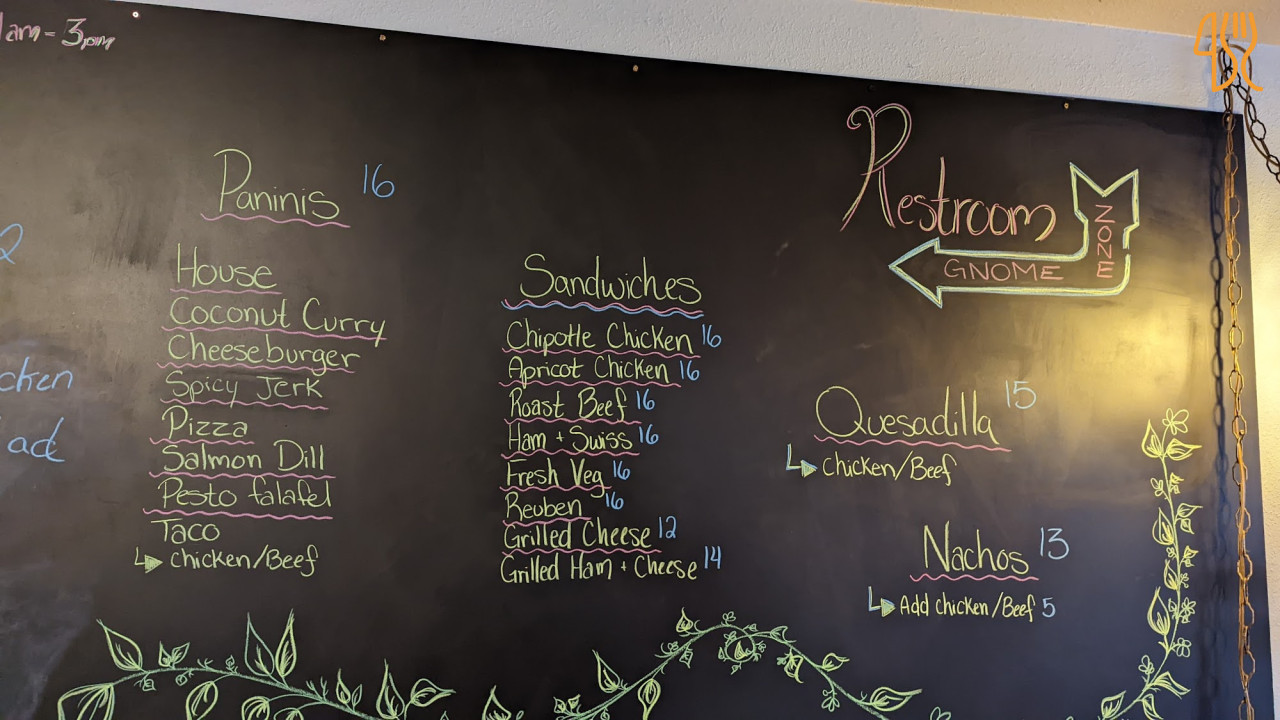 am - 3pm
Paninis 16
House
Coconut Curry
Cheeseburger
Spicy Jerk
Pizza
Salmon Dill
Pesto falafel
Taco
Chicken/Beef
Sandwiches
Chipotle Chicken 16
Apricot Chicken 16
Roast Beef 16
Ham + Swiss 16
Fresh Veg 16
Reuben 16
Grilled Cheese 12
Grilled Ham + Cheese 14
Restroom
GNOME ZONE
Quesadilla 15
Chicken/Beef
Nachos 13
Add Chicken/Beef 5